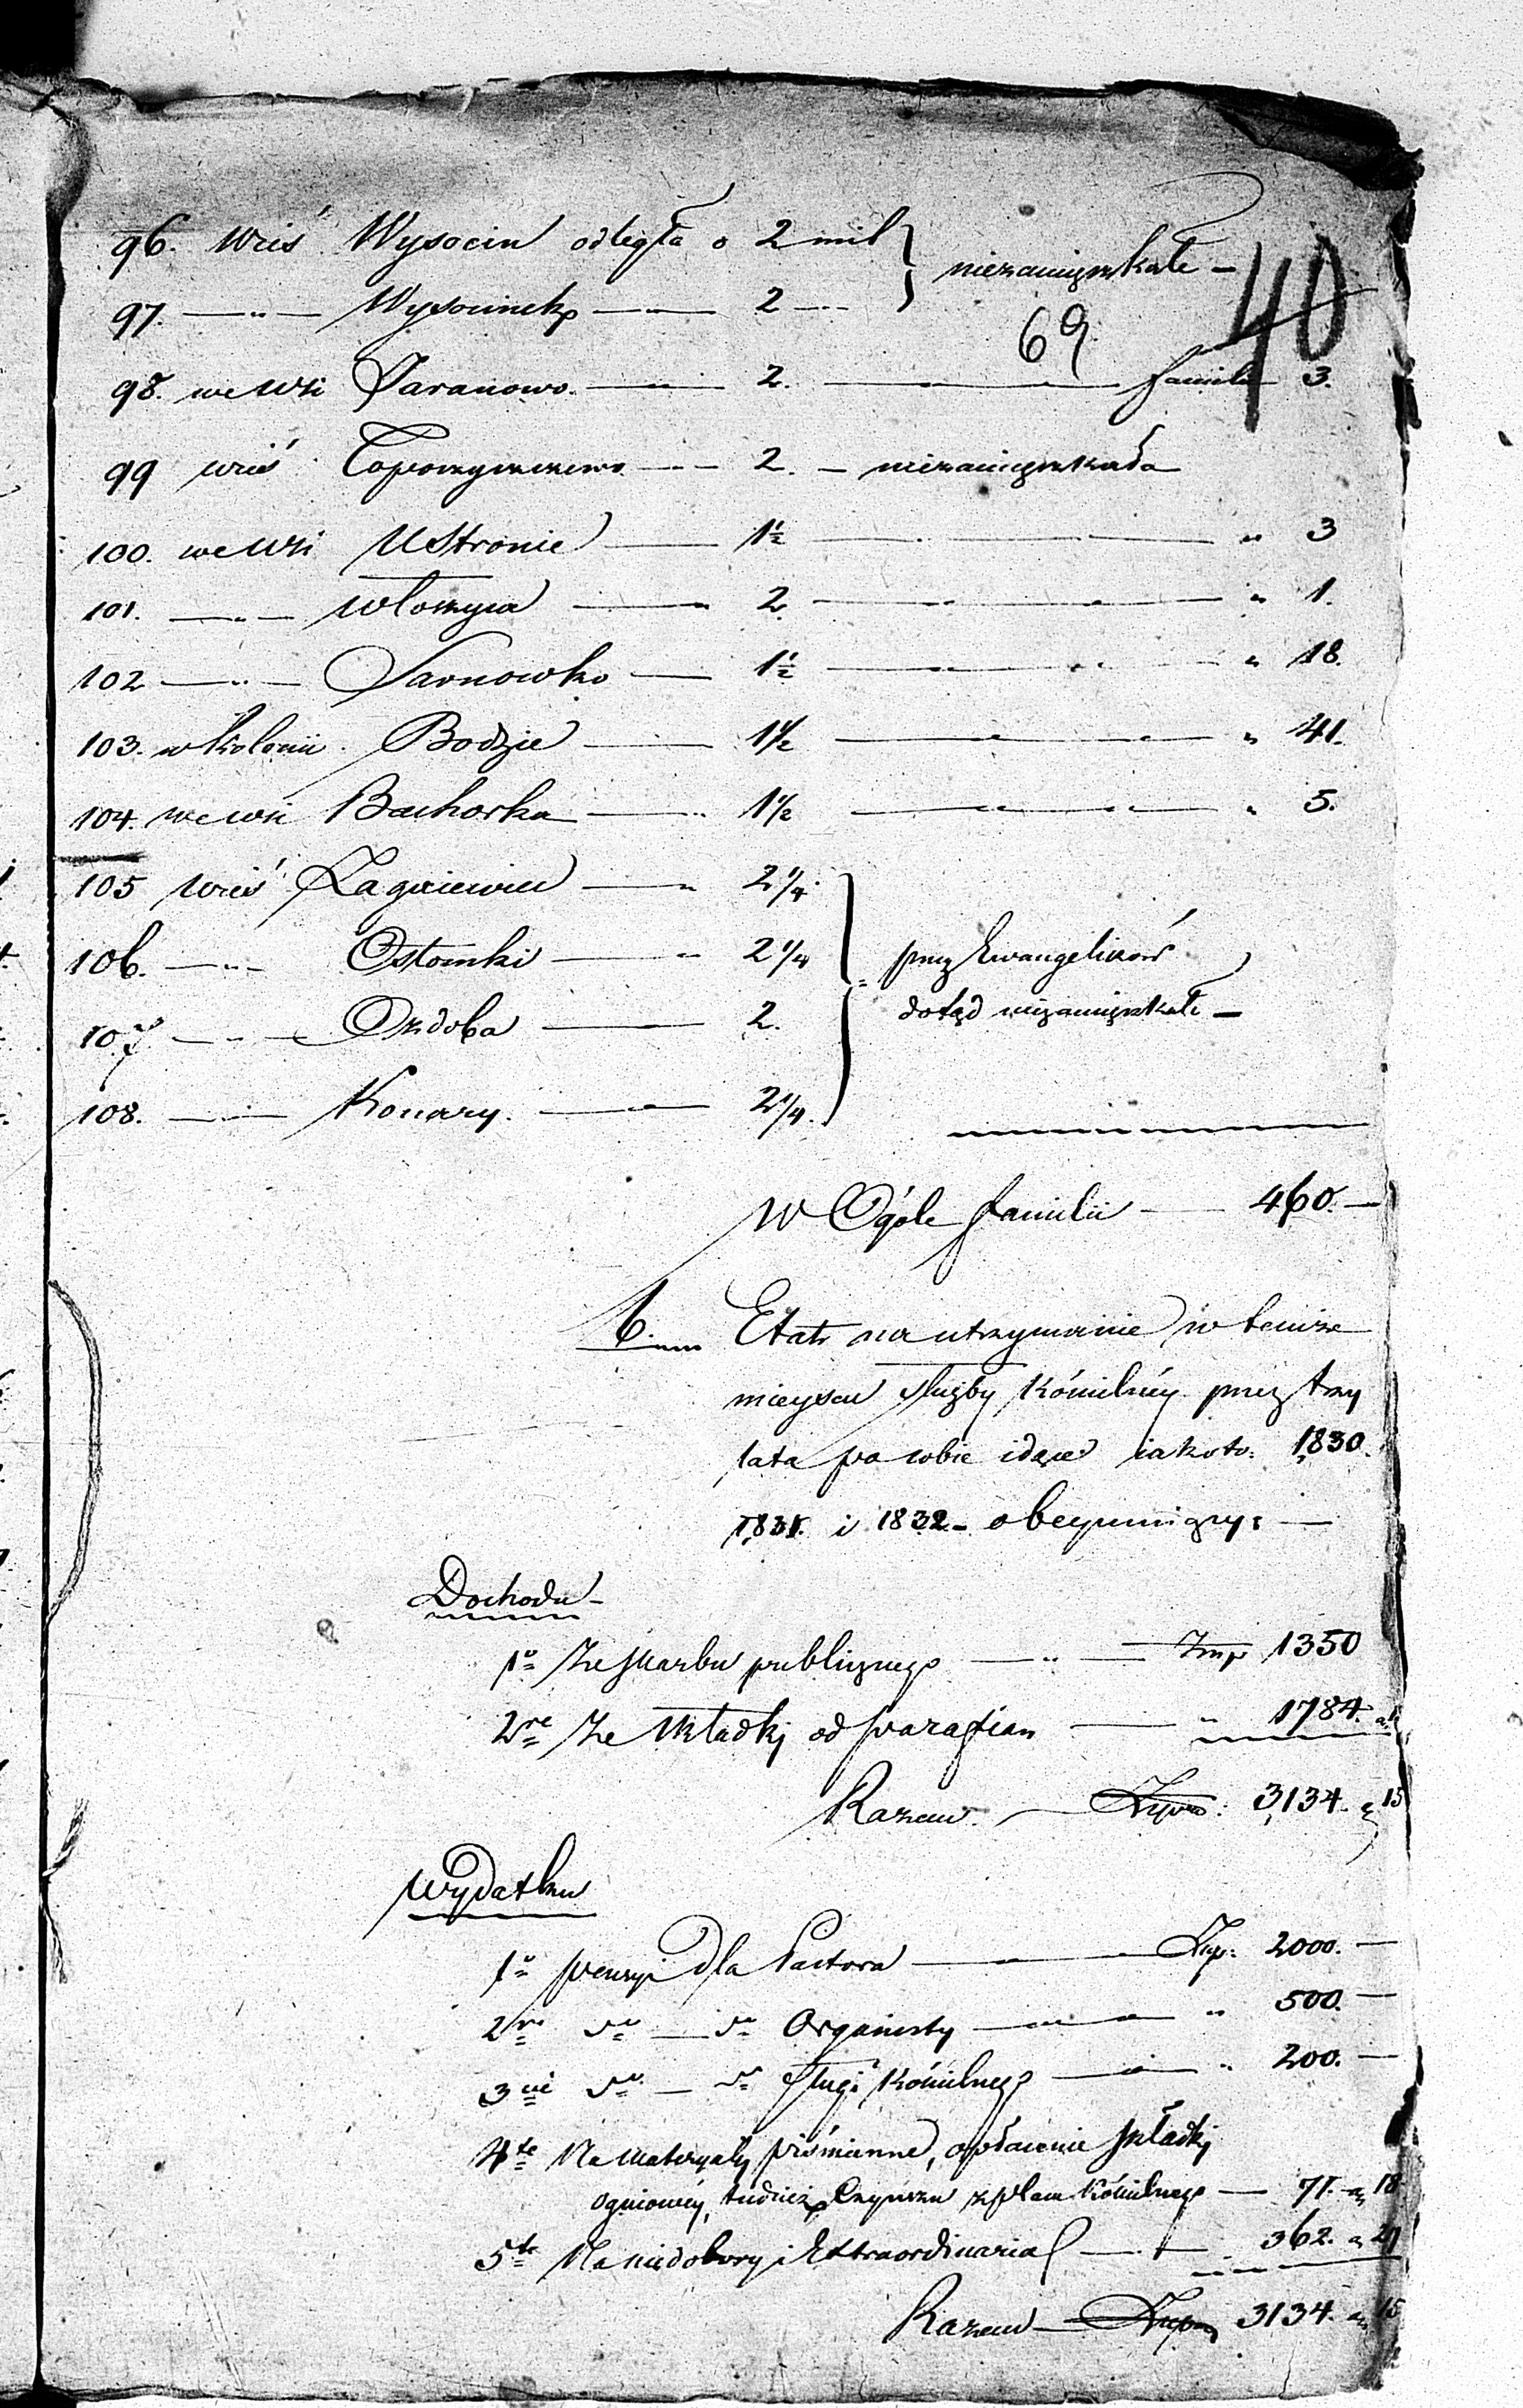 96. Wieś Wysocin odległa o 2 mil
niezamięszkałe —
97. —„— Wysocinek — 2 —
69
40
98. we Wsi Saranowo. — 2. — familii 3.
99 wieś — 2. — niezamięszkała
100. we Wsi Ustronie — 1½ — „ 3
101. —„— Włoszyca — 2. — „ 1.
102 —„— Sarnowko — 1½ — „ 18.
103. w Kolonii Bodzie — 1½ — „ 41.
104. we wsi Bachorka — 1½ — „ 5.
105 Wieś — 2¼.
106. —„— Ostomki — 2¼
przez Ewangelików
dotąd niezamięszkałe —
107 —„— Ozdoba — 2.
108. —„— Konary. — 2¼.
W Ogóle familii — 460. —
6. Etat na utrzymanie w temże
mieyscu służby Kościelney przez trzy
lata po sobie idące iakoto: 1830.
1831. i 1832 — obeymuiący: —
Dochodu —
1º Ze Skarbu publicznego —„— Złp 1350
2re Ze Składki od parafian — „ 1784.
Razem. — Złp: 3134. g 15
Wydatku
1º pensyi dla Pastora — Złp: 2000. —
2re dto — dto Organisty — „ 500. —
3cie dto — dto sługi Kościelnego — „ 200. —
4te Na Materyały piśmienne, opłacenie składki
ogniowéy, tudzież Czynszu z placu Kościelnego — 71. „ 18.
5te Na niedobory i Extraordinaria — 362. „ 27
Razem — 3134. „ 15